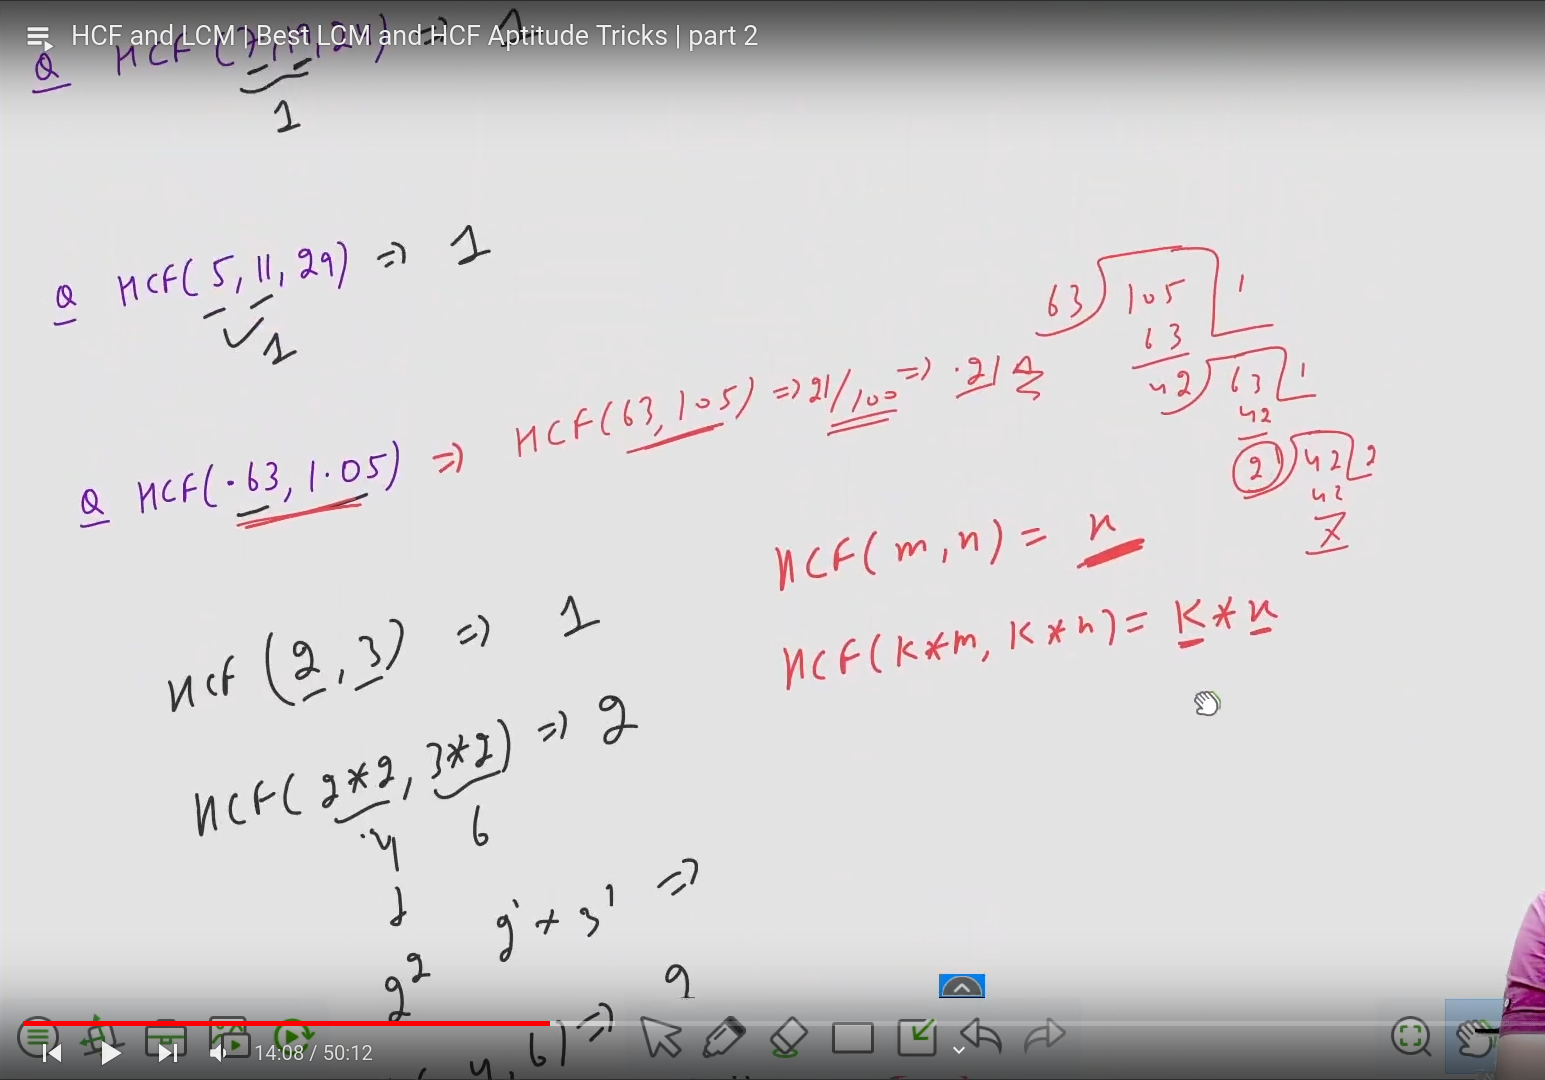 HCF and LCM | Best LCM and HCF Aptitude Tricks | part 2
Q HCF (7, 19, 24) => 1
1
Q HCF( 5, 11, 29) => 1
1
Q HCF( .63, 1.05) => HCF(63, 105) => 21/100 => .21
63) 105 ( 1
63
42) 63 ( 1
42
21) 42 ( 2
42
X
HCF( m, n) = x
HCF( K*m, K*n) = K*x
HCF (2, 3) => 1
HCF( 2*2, 3*2) => 2
4 6
2² 2¹ * 3¹ =>
2
4, 6) =>
14:08 / 50:12